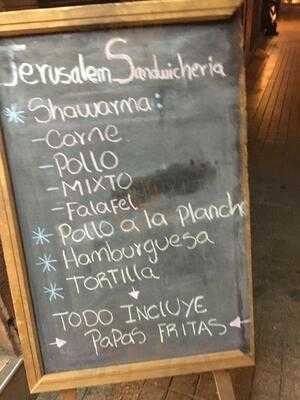 Jerusalem Sandwicheria
* Shawarma:
- Carne
- Pollo
- MIXTO
- Falafel
* Pollo a la Planch
* Hamburguesa
* TORTILLA
TODO INCLUYE
PAPAS FRITAS